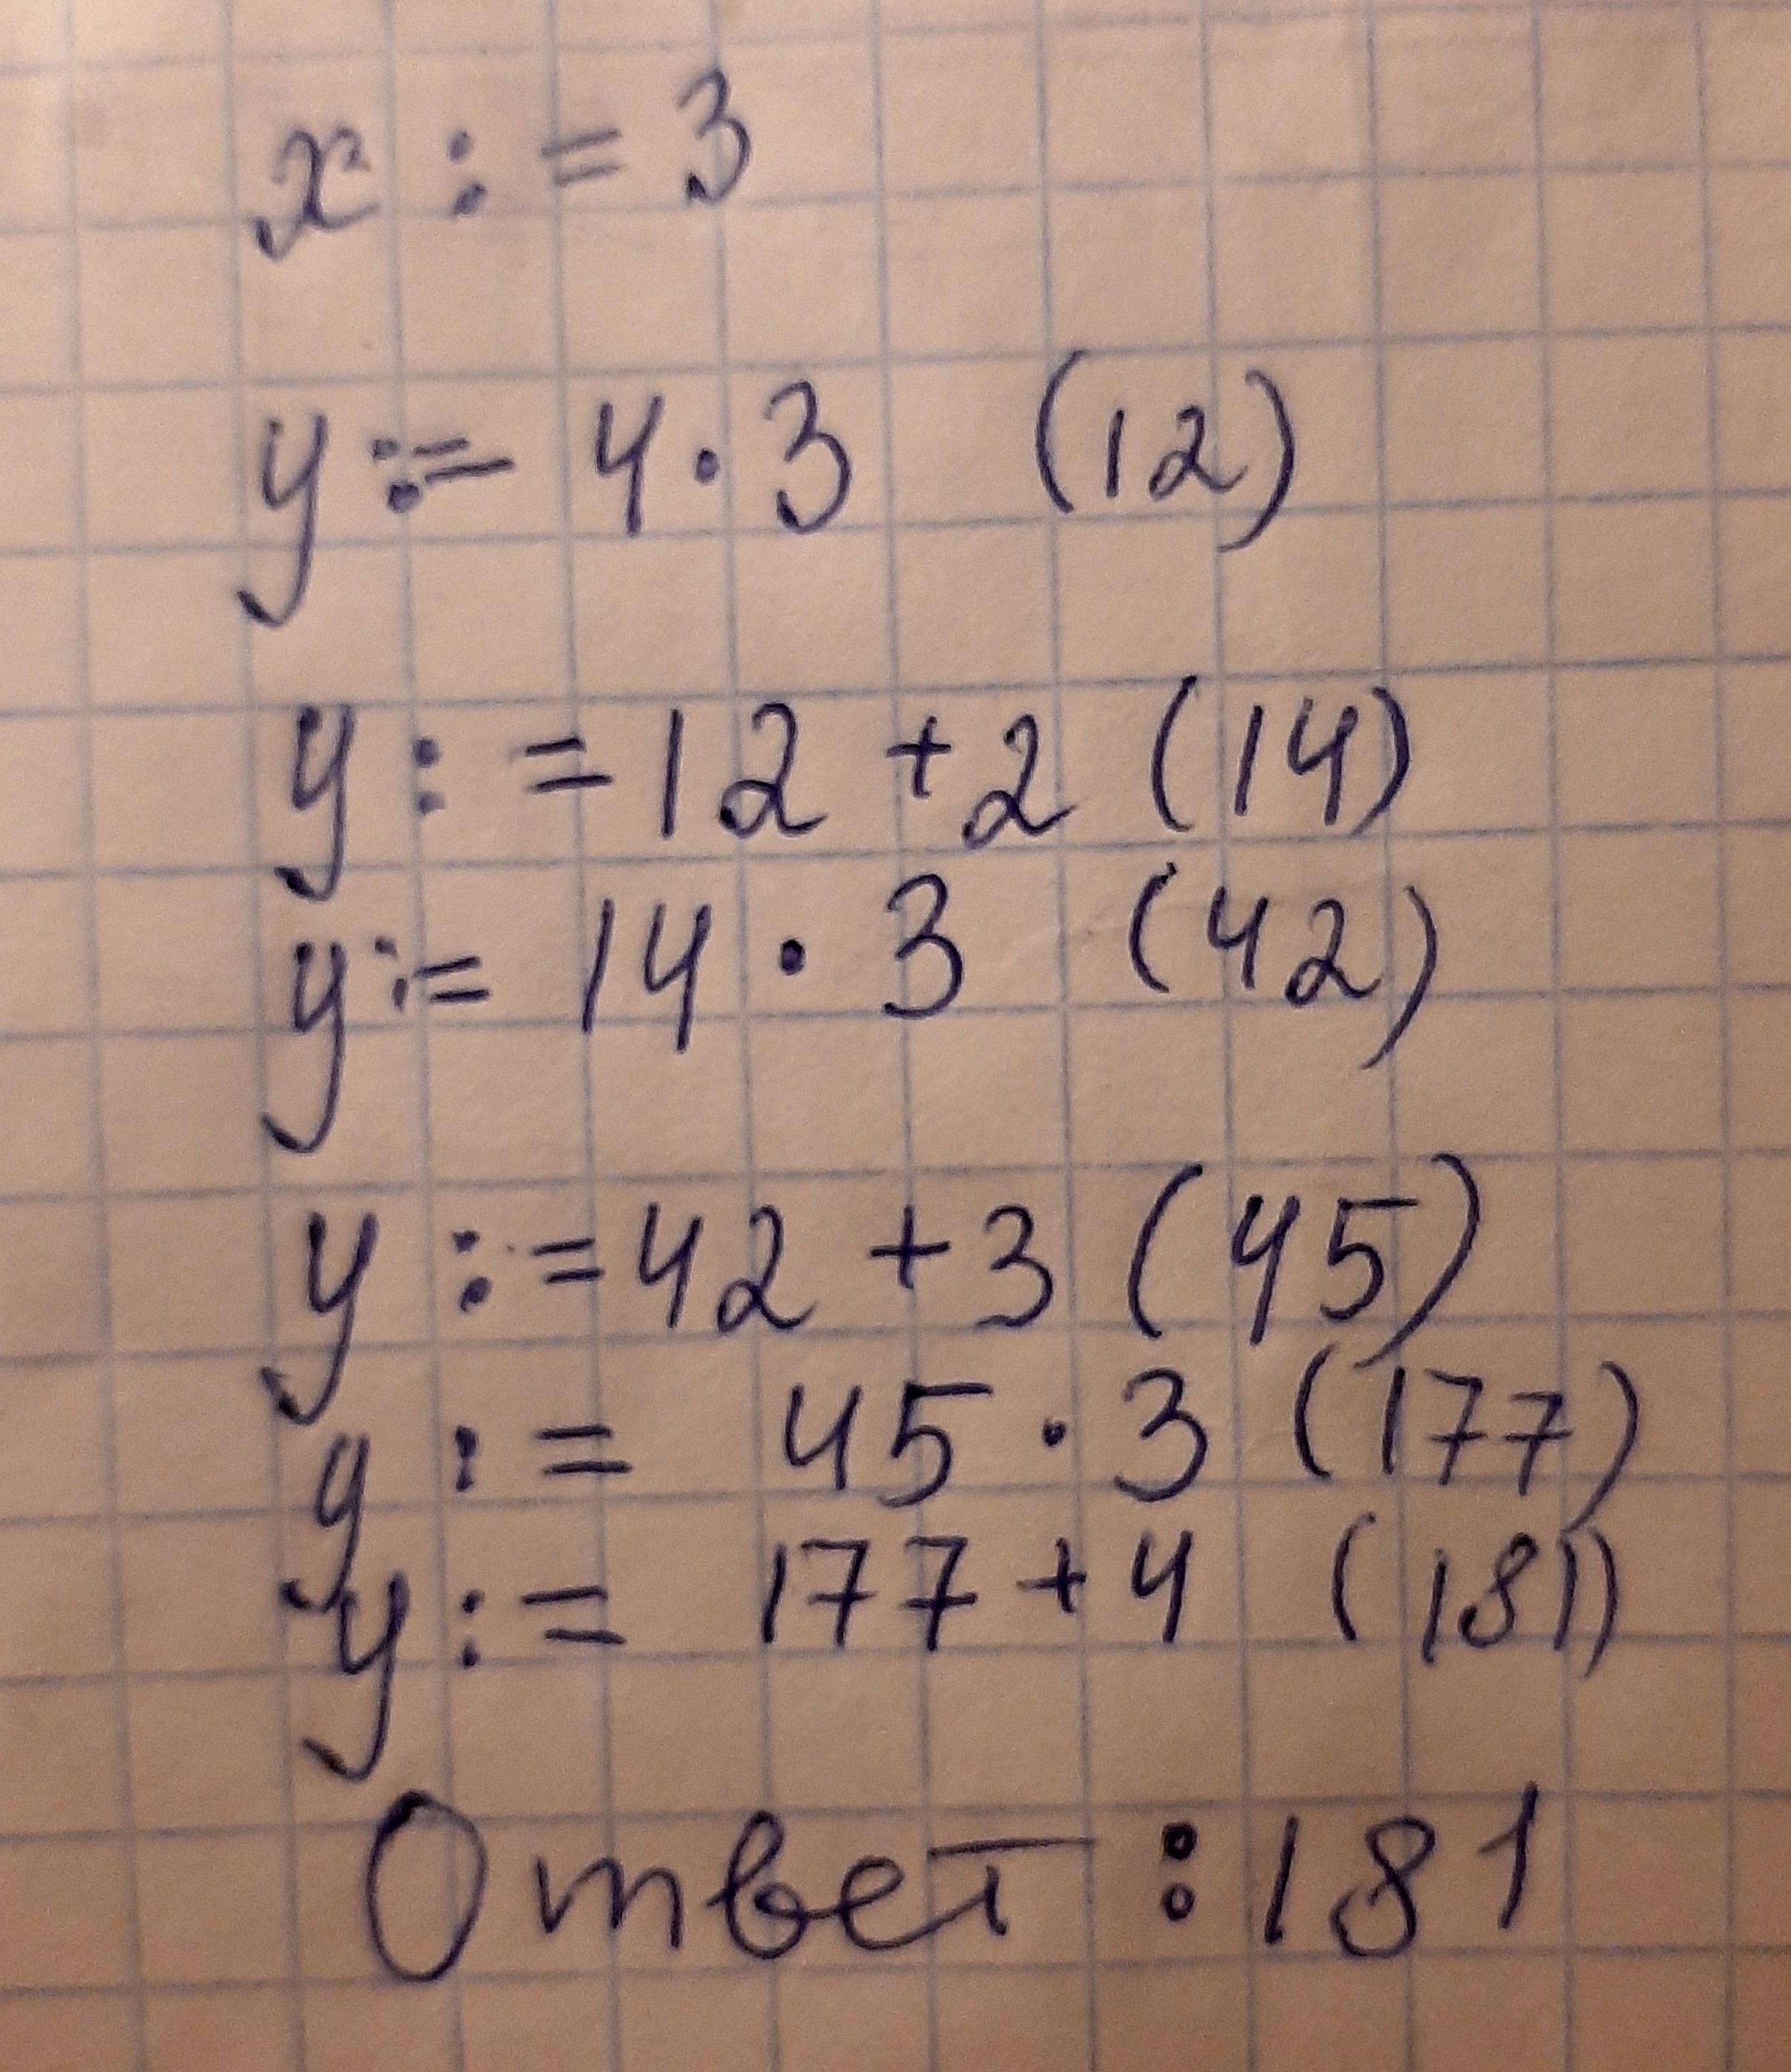 x := 3
y := 4 · 3 (12)
y := 12 + 2 (14)
y := 14 · 3 (42)
y := 42 + 3 (45)
y := 45 · 3 (177)
y := 177 + 4 (181)
Ответ : 181